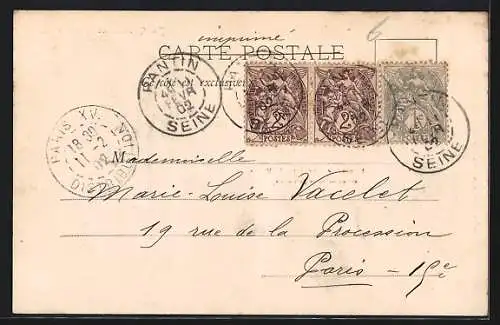 imprimé
CARTE POSTALE
Ce côté est exclusivement
PANTIN
SEINE
02
POSTES
2
POSTES
2
1
SEINE
PARIS XV
18 30
11 2
02
DISTRIBUTION
Mademoiselle
Marie-Louise Vacelet
19 rue de la Procession
Paris - 15e
6